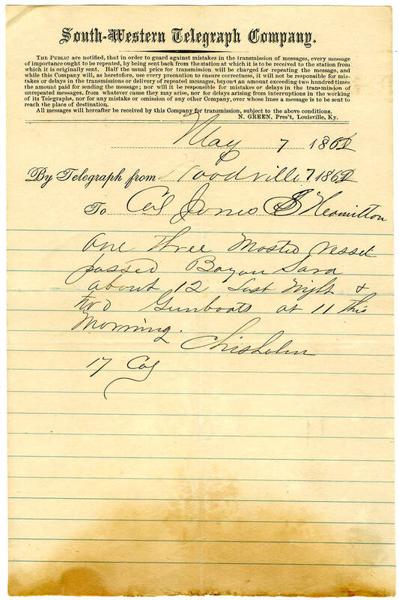 South-Western Telegraph Company.
THE PUBLIC are notified, that in order to guard against mistakes in the transmission of messages, every message
of importance ought to be repeated, by being sent back from the station at which it is to be received to the station from
which it is originally sent. Half the usual price for transmission will be charged for repeating the message, and
while this Company will, as heretofore, use every precaution to ensure correctness, it will not be responsible for mis-
takes or delays in the transmission or delivery of repeated messages, beyond an amount exceeding two hundred times
the amount paid for sending the message; nor will it be responsible for mistakes or delays in the transmission of
unrepeated messages, from whatever cause they may arise, nor for delays arising from interruptions in the working
of its Telegraphs, nor for any mistake or omission of any other Company, over whose lines a message is to be sent to
reach the place of destination.
All messages will hereafter be received by this Company for transmission, subject to the above conditions.
N. GREEN, Pres't, Louisville, Ky.
May 7 1862
By Telegraph from Woodville 7 1862
To Col Jones
one three Masted vessel
passed Bayou Sara
about 12 last night &
two Gunboats at 11 this
Morning.
Chisholm
17 Col